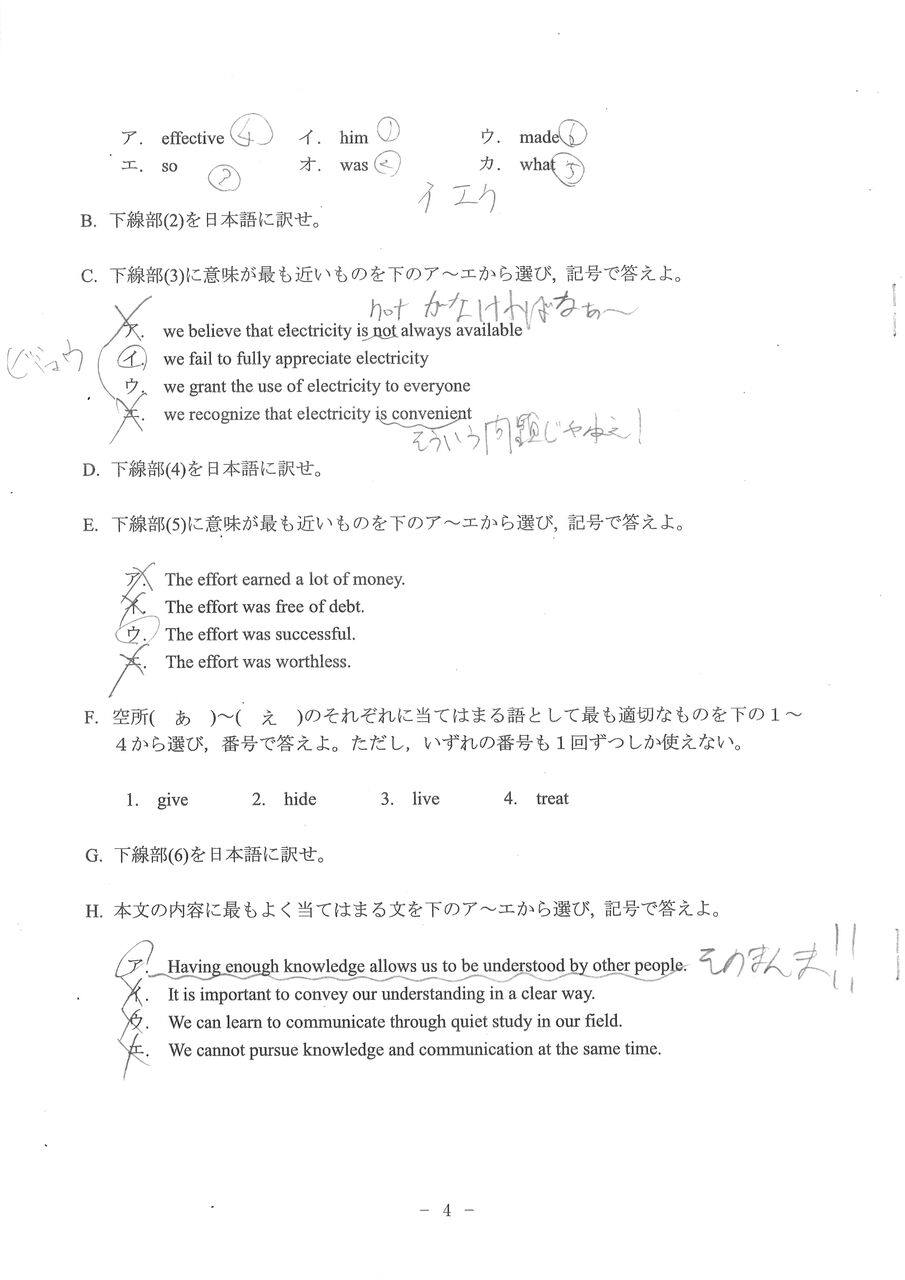 ア. effective ④ イ. him ① ウ. made ⑥
エ. so オ. was カ. what ⑤
イ エ ウ
B. 下線部(2)を日本語に訳せ。
C. 下線部(3)に意味が最も近いものを下のア～エから選び, 記号で答えよ。
not がなければなぁ～
ア. we believe that electricity is not always available
イ. we fail to fully appreciate electricity
ビミョウ
ウ. we grant the use of electricity to everyone
エ. we recognize that electricity is convenient
そういう問題じゃねえ!
D. 下線部(4)を日本語に訳せ。
E. 下線部(5)に意味が最も近いものを下のア～エから選び, 記号で答えよ。
ア. The effort earned a lot of money.
イ. The effort was free of debt.
ウ. The effort was successful.
エ. The effort was worthless.
F. 空所( あ )～( え )のそれぞれに当てはまる語として最も適切なものを下の１～
４から選び, 番号で答えよ。ただし, いずれの番号も１回ずつしか使えない。
1. give 2. hide 3. live 4. treat
G. 下線部(6)を日本語に訳せ。
H. 本文の内容に最もよく当てはまる文を下のア～エから選び, 記号で答えよ。
ア. Having enough knowledge allows us to be understood by other people. そのまんま!!
イ. It is important to convey our understanding in a clear way.
ウ. We can learn to communicate through quiet study in our field.
エ. We cannot pursue knowledge and communication at the same time.
－ 4 －